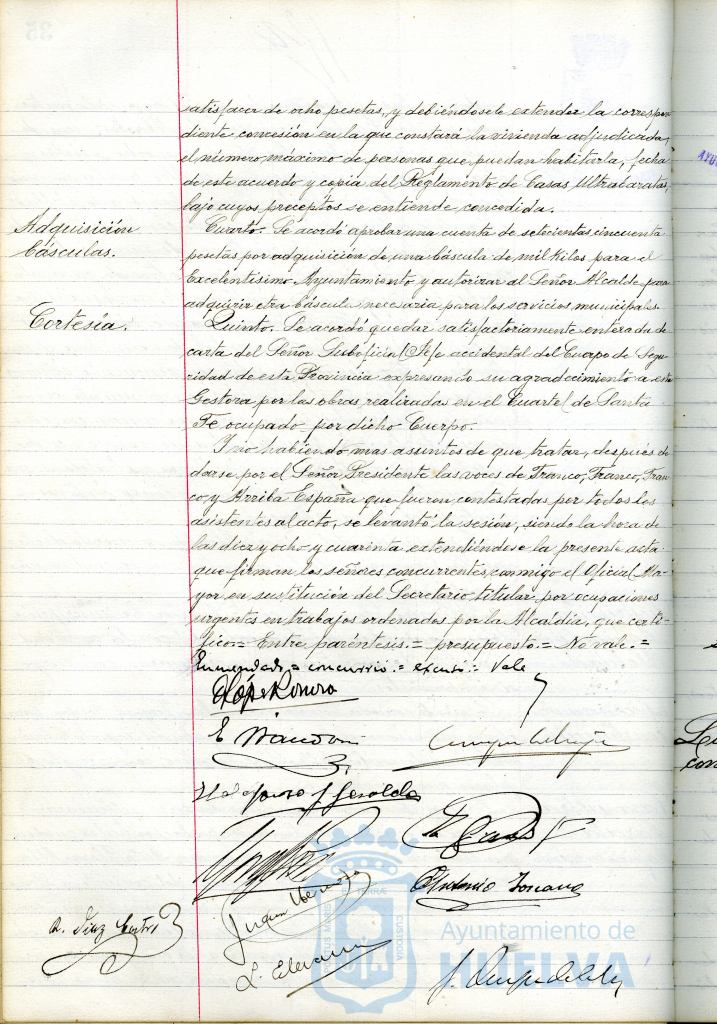 satisfacer de ocho pesetas, y debiéndosele extender la correspon-
diente concesión en la que constará la vivienda adjudicada,
el número máximo de personas que puedan habitarla, fecha
de este acuerdo y copia del Reglamento de Casas Ultrabaratas,
bajo cuyos preceptos se entiende concedida.
Adquisición
básculas.
Cuarto. Se acordó aprobar una cuenta de setecientas cincuenta
pesetas por adquisición de una báscula de mil kilos para el
Excelentísimo Ayuntamiento y autorizar al Señor Alcalde para
adquirir otra báscula necesaria para los servicios municipales.
Cortesía.
Quinto. Se acordó quedar satisfactoriamente enterada de
carta del Señor Suboficial Jefe accidental del Cuerpo de Segu-
ridad de esta Provincia expresando su agradecimiento a esta
Gestora por las obras realizadas en el Cuartel de Santa
Fe ocupado por dicho Cuerpo.
Y no habiendo mas asuntos de que tratar, después de
darse por el Señor Presidente las voces de Franco, Franco, Fran-
co, y Arriba España que fueron contestadas por todos los
asistentes al acto, se levantó la sesión, siendo la hora de
las diez y ocho y cuarenta extendiéndose la presente acta
que firman los señores concurrentes, conmigo el Oficial Ma-
yor en sustitución del Secretario titular por ocupaciones
urgentes en trabajos ordenados por la Alcaldía, que certi-
fico.= Entre paréntesis.= presupuesto.= No vale.=
Enmendado = concurrió = excusó = Vale
E.
Antonio Toscano
Juan
Ayuntamiento de
HUELVA